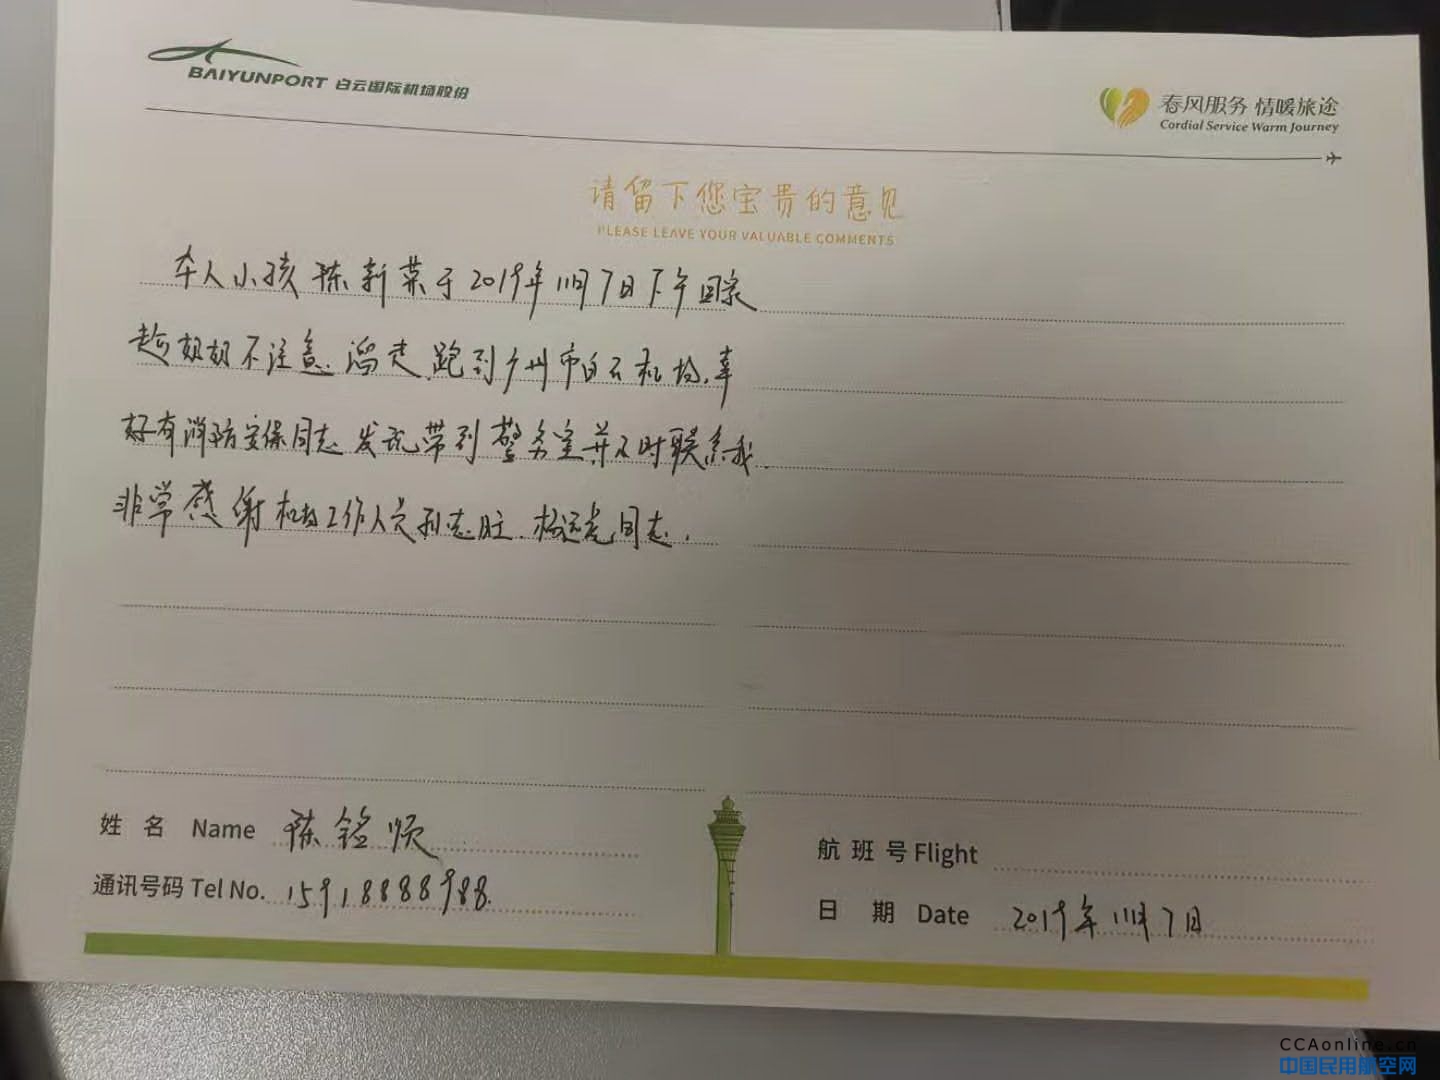 BAIYUNPORT 白云国际机场股份
春风服务 情暖旅途
Cordial Service Warm Journey
请留下您宝贵的意见
PLEASE LEAVE YOUR VALUABLE COMMENTS
本人小孩陈新菜于2019年11月7日下午回家
趁奶奶不注意.溜走.跑到广州市白云机场.幸
好有消防安保同志发现带到警务室并及时联系我.
非常感谢机场工作人员孙志旺.杨远志同志.
姓 名 Name 陈铭顺
通讯号码 Tel No. 15918888988.
航 班 号 Flight
日 期 Date 2019年11月7日
CCAonline.cn
中国民用航空网